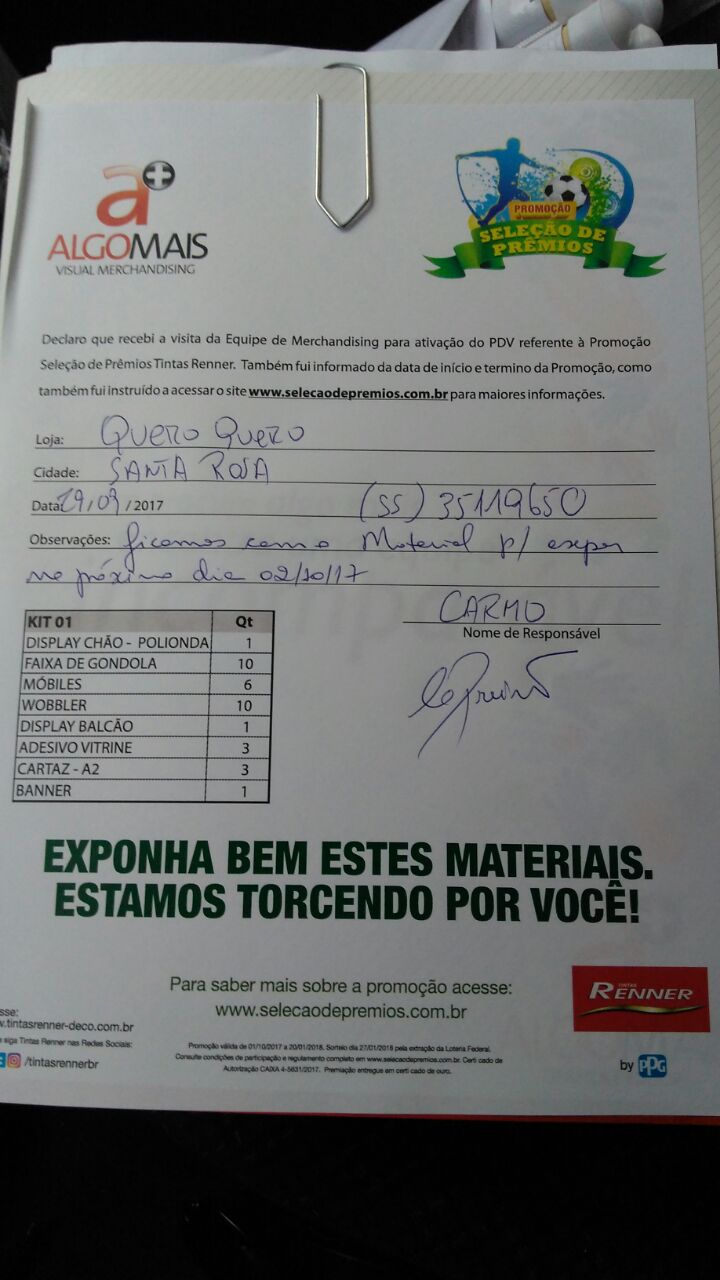 a+
ALGOMAIS
VISUAL MERCHANDISING
PROMOÇÃO
SELEÇÃO DE
PRÊMIOS
Declaro que recebi a visita da Equipe de Merchandising para ativação do PDV referente à Promoção
Seleção de Prêmios Tintas Renner. Também fui informado da data de início e termino da Promoção, como
também fui instruído a acessar o site www.selecaodepremios.com.br para maiores informações.
Loja: QUERO QUERO
Cidade: SANTA ROSA
Data: 29/09/2017 (55) 35119650
Observações: ficamos com o Material p/ expor
no próximo dia 02/10/17
CARMO
Nome de Responsável
KIT 01 Qt
DISPLAY CHÃO - POLIONDA 1
FAIXA DE GONDOLA 10
MÓBILES 6
WOBBLER 10
DISPLAY BALCÃO 1
ADESIVO VITRINE 3
CARTAZ - A2 3
BANNER 1
EXPONHA BEM ESTES MATERIAIS.
ESTAMOS TORCENDO POR VOCÊ!
Para saber mais sobre a promoção acesse:
www.selecaodepremios.com.br
TINTAS
RENNER
by PPG
sse:
w.tintasrenner-deco.com.br
e siga Tintas Renner nas Redes Sociais:
/tintasrennerbr
Promoção válida de 01/10/2017 a 20/01/2018. Sorteio dia 27/01/2018 pela extração da Loteria Federal.
Consulte condições de participação e regulamento completo em www.selecaodepremios.com.br. Certi cado de
Autorização CAIXA 4-5631/2017. Premiação entregue em certi cado de ouro.